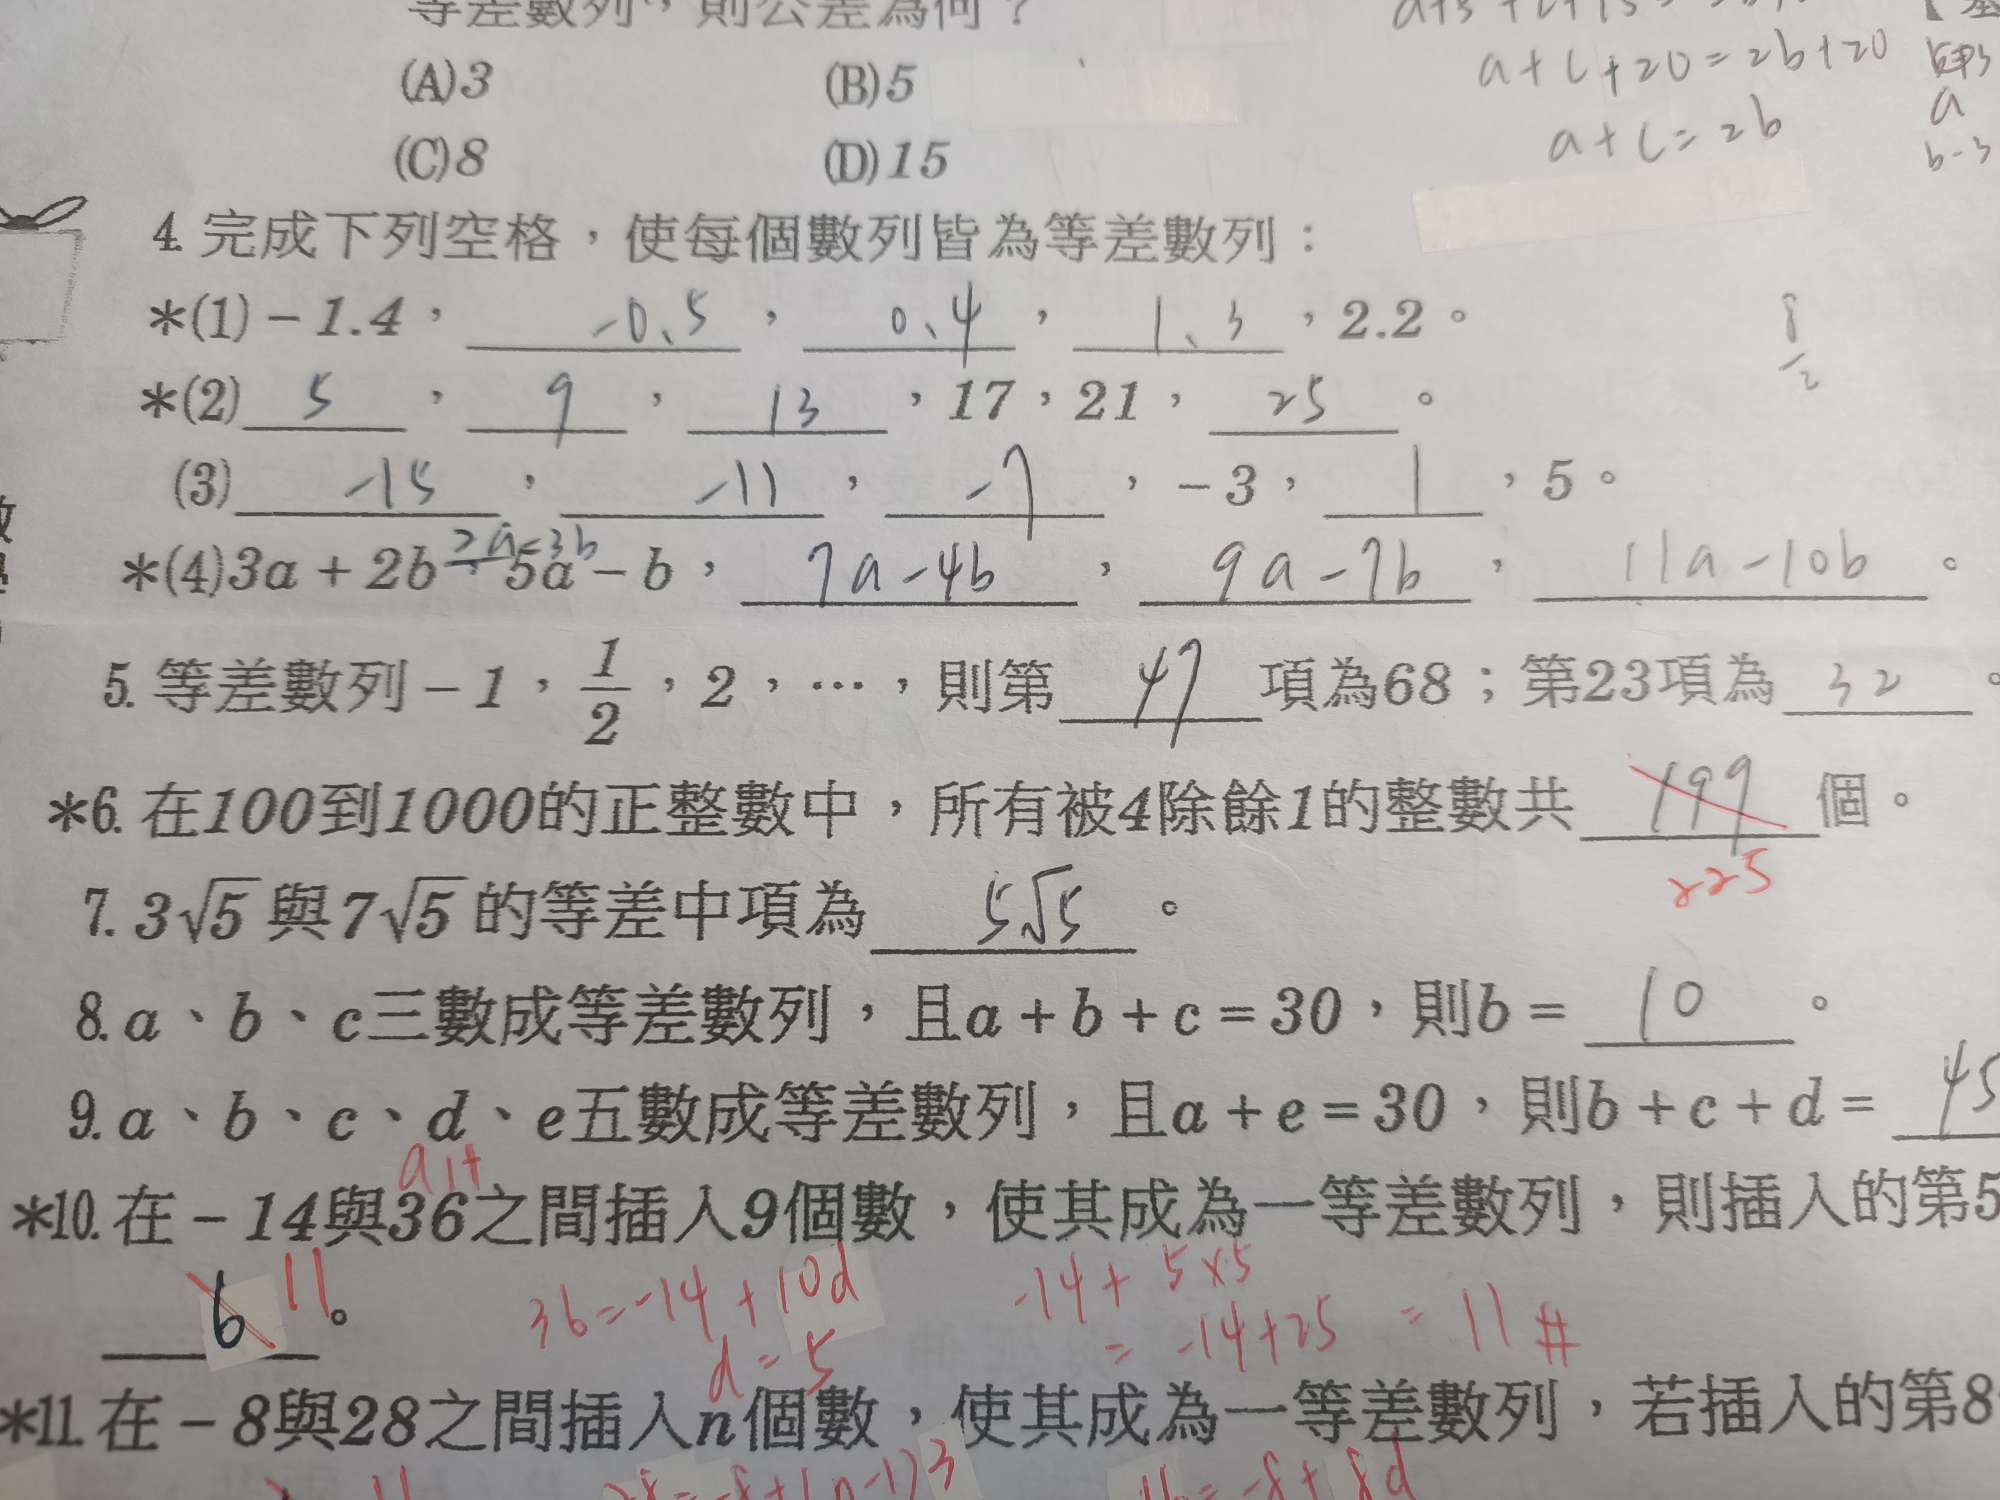 等差數列，則公差為何？
(A)3 (B)5
a+c+20=2b+20
(C)8 (D)15
a+c=2b
a
b-3
4. 完成下列空格，使每個數列皆為等差數列：
*(1)-1.4， -0.5 ， 0.4 ， 1.3 ，2.2。
*(2) 5 ， 9 ， 13 ，17，21， 25 。
(3) -15 ， -11 ， -7 ，-3， 1 ，5。
2a-3b
*(4)3a+2b，5a-b， 7a-4b ， 9a-7b ， 11a-10b 。
5. 等差數列-1，1/2，2，…，則第 47 項為68；第23項為 32 。
*6. 在100到1000的正整數中，所有被4除餘1的整數共 199 個。
225
7. 3√5與7√5的等差中項為 5√5 。
8. a、b、c三數成等差數列，且a+b+c=30，則b= 10 。
9. a、b、c、d、e五數成等差數列，且a+e=30，則b+c+d= 45
a1+
*10. 在-14與36之間插入9個數，使其成為一等差數列，則插入的第5
6 11。
36=-14+10d
d=5
-14+5×5
=-14+25=11#
*11. 在-8與28之間插入n個數，使其成為一等差數列，若插入的第8
28=-8+(n-1)3
16=-8+8d